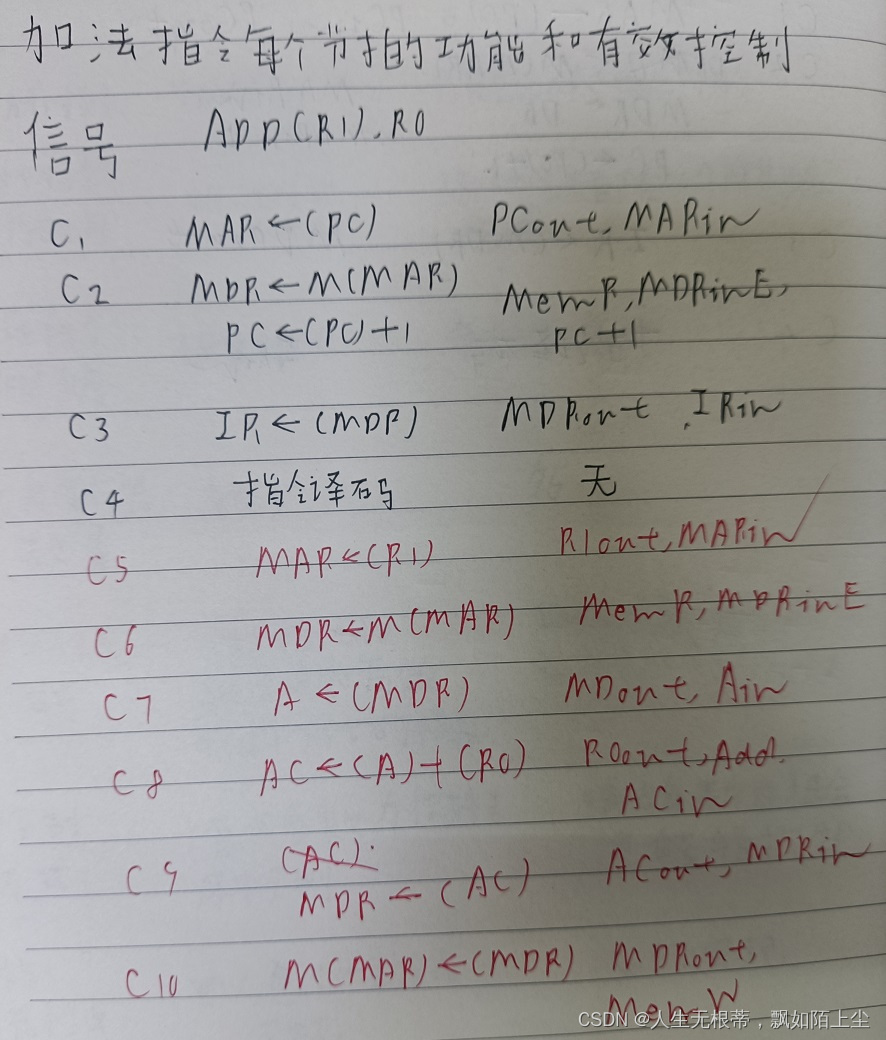 加法指令每个节拍的功能和有效控制
信号 ADD(R1),R0
C1 MAR←(PC) PCout, MARin
C2 MDR←M(MAR) MemR, MDRinE,
PC←(PC)+1 PC+1
C3 IR←(MDR) MDRout, IRin
C4 指令译码 无
C5 MAR←(R1) R1out, MARin
C6 MDR←M(MAR) MemR, MDRinE
C7 A←(MDR) MDout, Ain
C8 AC←(A)+(R0) R0out, Add,
ACin
(AC)
C9 MDR←(AC) ACout, MDRin
C10 M(MAR)←(MDR) MDRout,
MemW
CSDN @人生无根蒂，飘如陌上尘